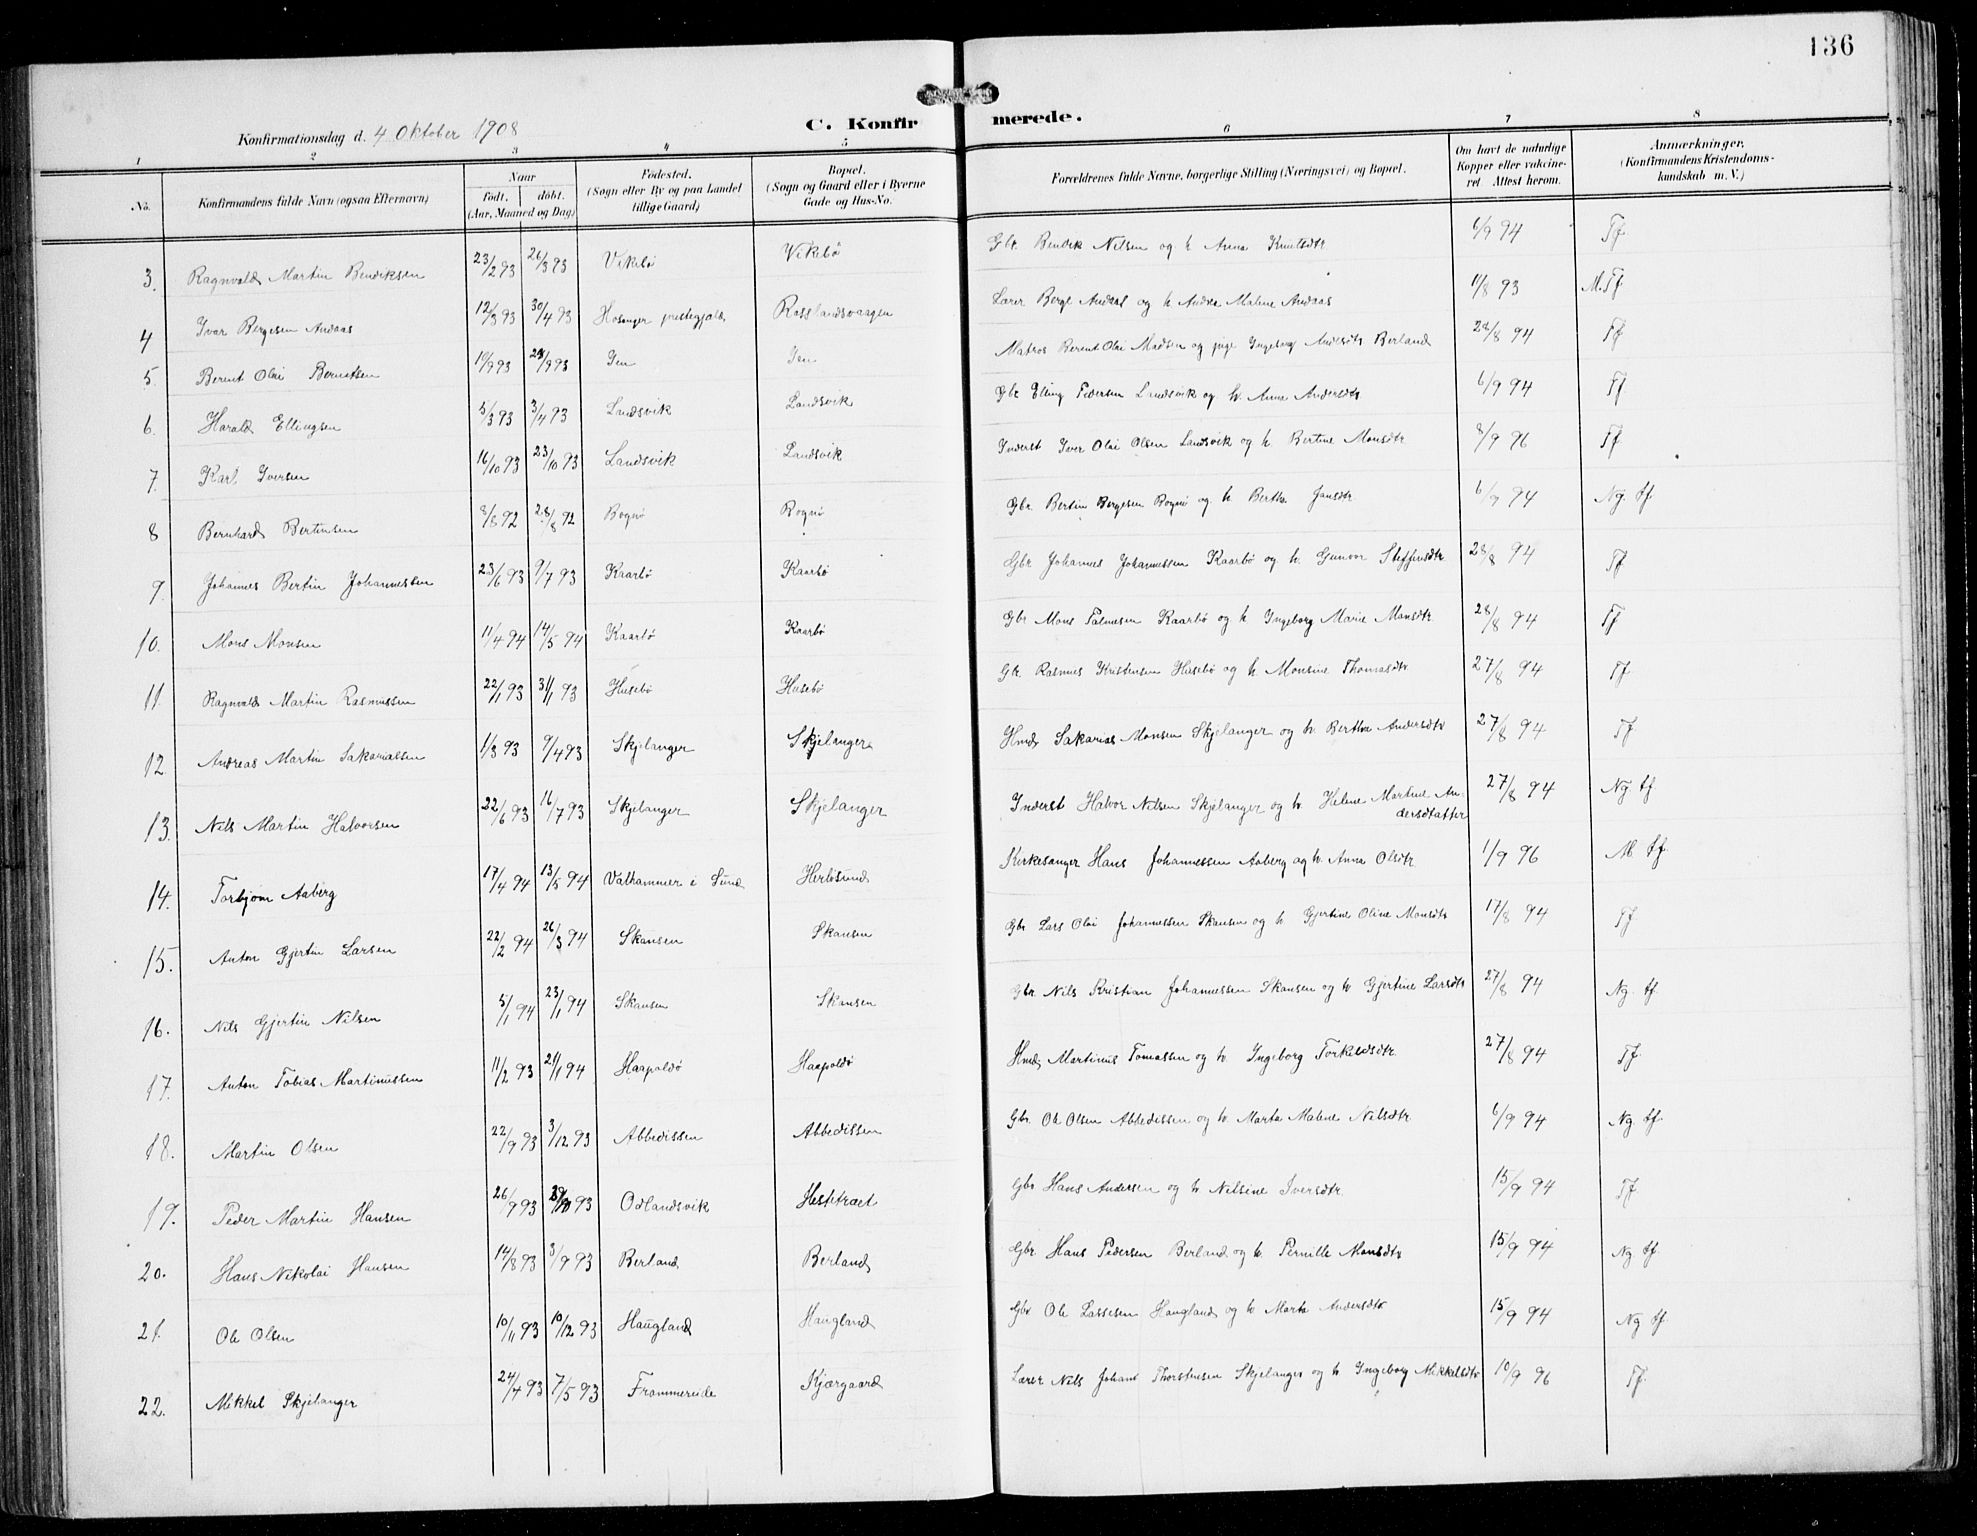 136
Konfirmationsdag d. 4 Oktober 1908
C. Konfirmerede.
1 2 3 4 5 6 7 8
No. Konfirmandens fulde Navn (ogsaa Efternavn) Naar født. døbt. (Aar, Maaned og Dag) Fødested. (Sogn eller By og paa Landet tillige Gaard) Bopæl. (Sogn og Gaard eller i Byerne Gade og Hus-No. Forældrenes fulde Navne, borgerlige Stilling (Næringsvei) og Bopæl. Om havt de naturlige Kopper eller vakcineret. Attest herom. Anmærkninger, (Konfirmandens Kristendomskundskab m. V.)
3. Ragnvald Martin Bendiksen 23/2 93 26/3 93 Vikebø Vikebø Gbr. Bendik Nilsen og h. Anna Knutsdtr 6/9 94 Tf.
4 Ivar Bergesen Andaas 12/3 93 30/4 93 Hosanger prestegjæld Rosslandsvaagen Lærer Berge Andaas og h. Andrea Malene Andaas 11/8 93 M. Tf
5. Berent Olai Berntsen 10/9 93 24/9 93 Ien Ien Matros Berent Olai Madsen og pige Ingeborg Andersdtr Berland 28/8 94 Tf
6. Harald Ellingsen 5/3 93 3/4 93 Landsvik Landsvik Gbr Elling Pedersen Landsvik og h. Anna Andersdtr 6/9 94 Tf.
7. Karl Iversen 16/10 93 23/10 93 Landsvik Landsvik Inderst Iver Olai Olsen Landsvik og h Bertine Monsdtr 8/9 96 Tf
8 Bernhard Bertinsen 8/8 92 28/8 92 Bognø Bognø Gbr. Bertin Bergesen Bognø og h Bertha Jansdtr. 6/9 94 Ng. tf.
9. Johannes Bertin Johannessen 23/6 93 9/7 93 Kaarbø Kaarbø Gbr Johannes Johannessen Kaarbø og h. Gunvor Steffensdtr. 28/8 94 Tf
10. Mons Monsen 11/4 94 14/5 94 Kaarbø Kaarbø Gbr Mons Palmesen Kaarbø og h. Ingeborg Marie Monsdtr. 28/8 94 Tf
11. Ragnvald Martin Rasmussen 22/1 93 31/1 93 Husebø Husebø Gbr. Rasmus Kristensen Husebø og h Monsine Thomasdtr 27/8 94 Tf
12. Andreas Martin Sakariassen 1/3 93 9/4 93 Skjelanger Skjelanger Hmd Sakarias Monsen Skjelanger og h. Bertha Andersdtr 27/8 94 Tf
13. Nils Martin Halvorsen 22/6 93 16/7 93 Skjelanger Skjelanger Inderst Halvor Nilsen Skjelanger og h. Helene Martine An-
dersdatter 27/8 94 Ng. tf.
14. Torbjørn Aaberg 17/4 94 13/5 94 Valhammer i Sund Herløsund Kirkesanger Hans Johannessen Aaberg og h. Anna Olsdtr 1/9 96 M. tf.
15. Anton Gjertin Larsen 22/2 94 26/3 94 Skansen Skansen Gbr Lars Olai Johannessen Skansen og h Gjertine Oline Monsdtr 17/8 94 Tf
16. Nils Gjertin Nilsen 5/1 94 23/1 94 Skansen Skansen Gbr. Nils Kristian Johannessen Skansen og h Gjertine Larsdtr 27/8 94 Ng. tf.
17. Anton Tobias Martinussen 11/2 93 21/1 94 Haapoldø Haapoldø Hmd Martinus Tomassen og h. Ingeborg Torkeldsdtr. 27/8 94 Tf
18. Martin Olsen 22/9 93 3/12 93 Abbedissen Abbedissen Gbr. Ole Olsen Abbedissen og h. Marta Malene Nilsdtr. 6/9 94 Ng. tf.
19. Peder Martin Hansen 26/9 93 29/10 93 Odlandsvik Hestetræet Gbr Hans Andersen og h Nilsine Iversdtr. 15/9 94 Tf
20. Hans Nikolai Hansen 14/8 93 3/9 93 Berland Berland Gbr. Hans Pedersen Berland og h. Pernille Monsdtr 15/9 94 Ng tf.
21. Ole Olsen 10/11 93 10/12 93 Haugland Haugland Gbr Ole Lassesen Haugland og h Marta Andersdtr 15/9 94 Ng tf.
22. Mikkel Skjelanger 24/4 93 7/5 93 Frommereide Kjærgaard Lærer Nils Johan Thorstensen Skjelanger og h Ingeborg Mikkelsdtr 10/9 96 Tf.